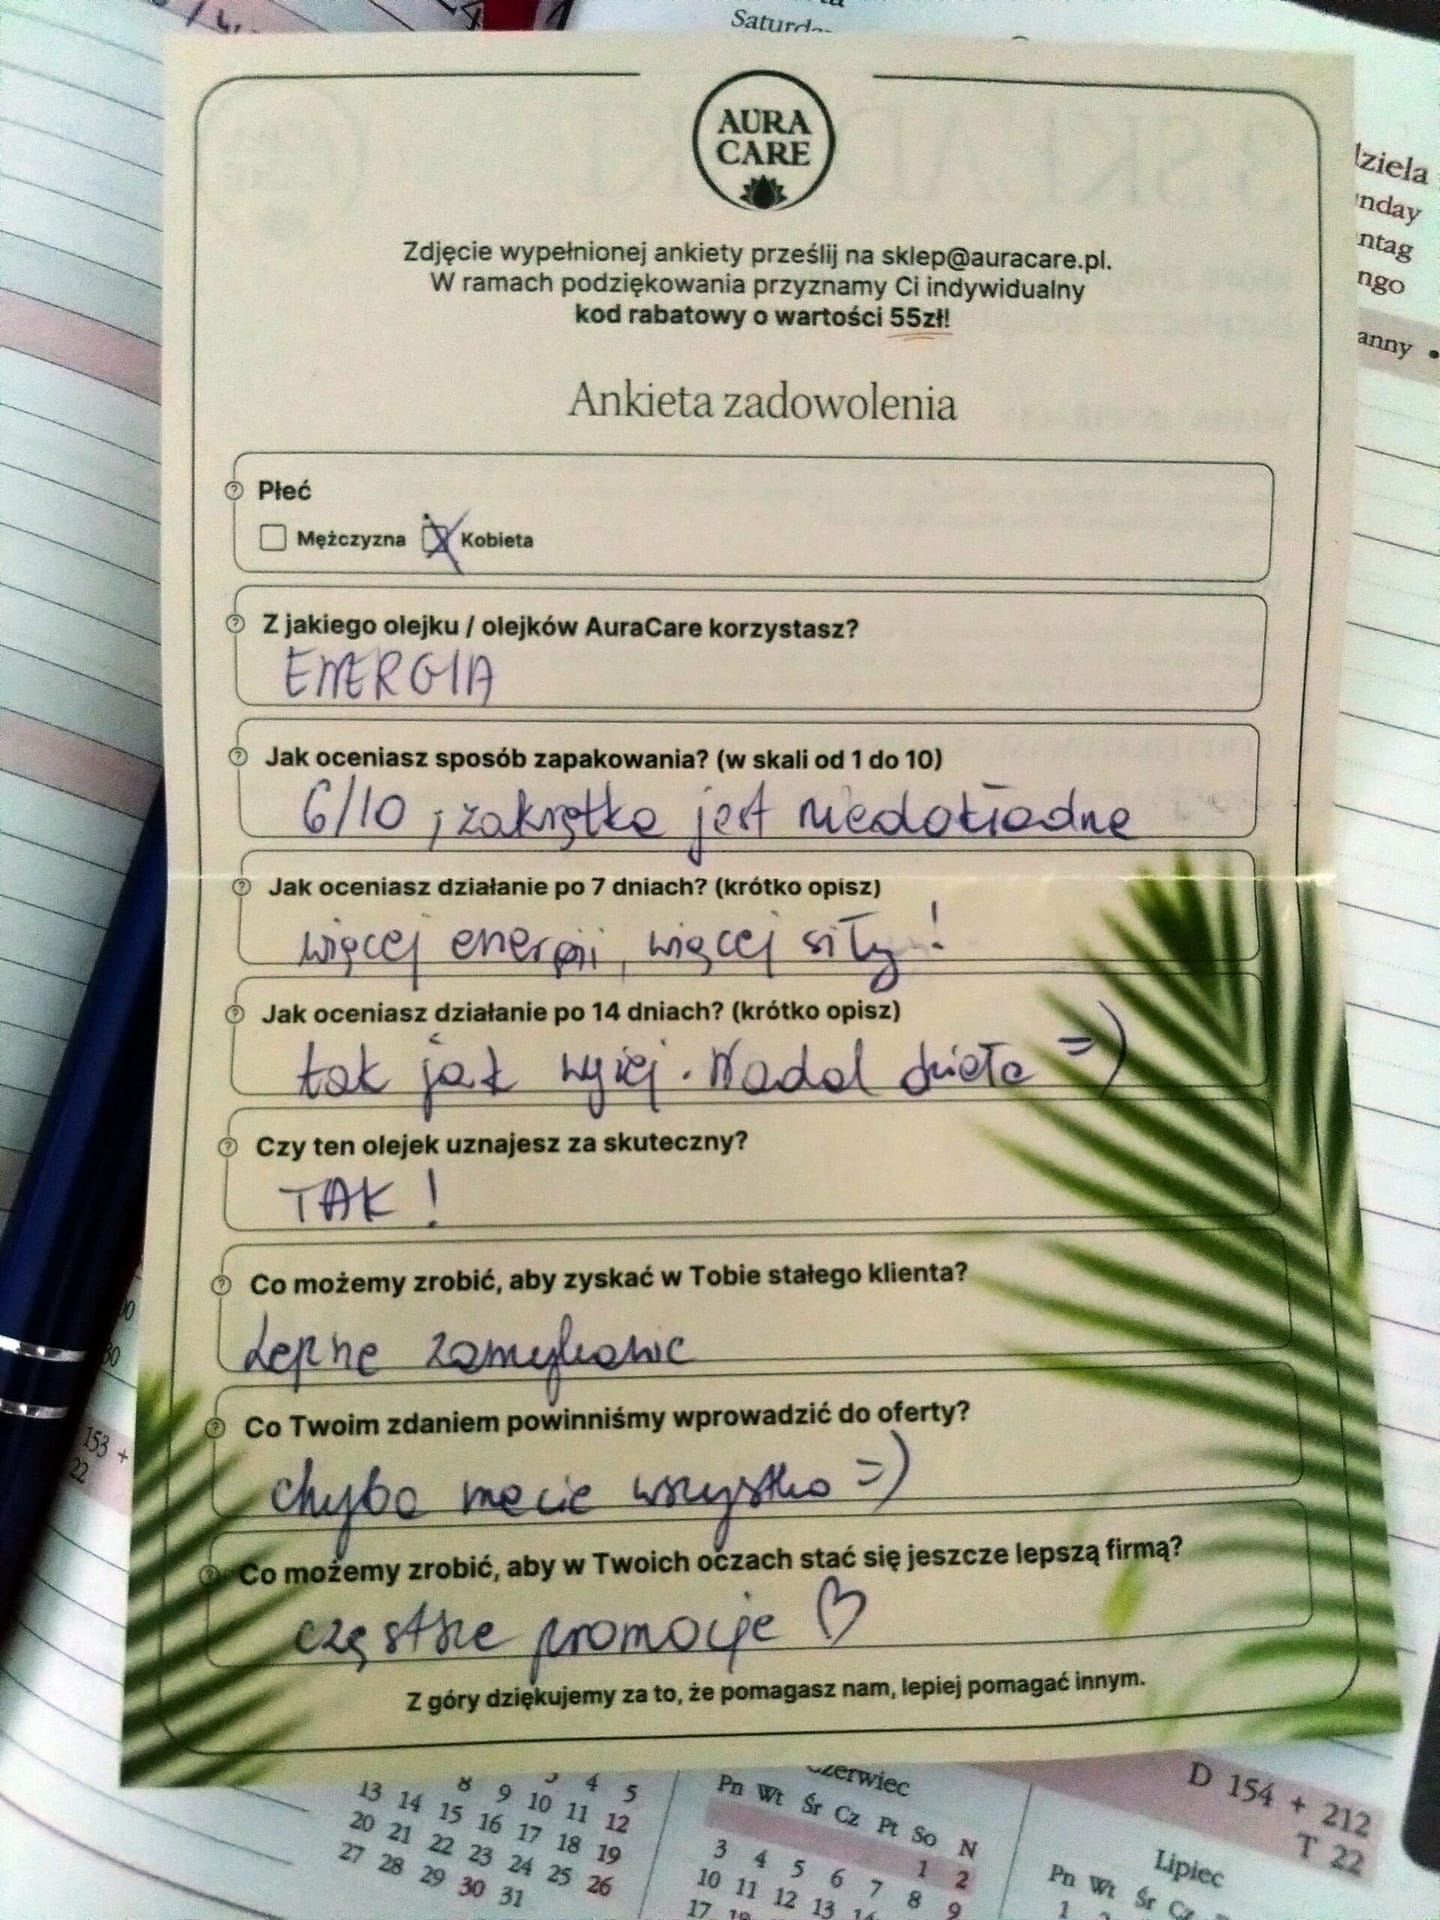 Saturda
AURA
CARE
Zdjęcie wypełnionej ankiety prześlij na sklep@auracare.pl.
W ramach podziękowania przyznamy Ci indywidualny
kod rabatowy o wartości 55zł!
Ankieta zadowolenia
Płeć
Mężczyzna Kobieta
Z jakiego olejku / olejków AuraCare korzystasz?
ENERGIA
Jak oceniasz sposób zapakowania? (w skali od 1 do 10)
6/10, zakrętka jest niedokładna
Jak oceniasz działanie po 7 dniach? (krótko opisz)
więcej energii, więcej siły!
Jak oceniasz działanie po 14 dniach? (krótko opisz)
tak jak wyżej. Nadal działa =)
Czy ten olejek uznajesz za skuteczny?
TAK!
Co możemy zrobić, aby zyskać w Tobie stałego klienta?
Lepsze zamykanie
Co Twoim zdaniem powinniśmy wprowadzić do oferty?
chyba macie wszystko =)
Co możemy zrobić, aby w Twoich oczach stać się jeszcze lepszą firmą?
częstsze promocje
Z góry dziękujemy za to, że pomagasz nam, lepiej pomagać innym.
dziela
nday
ntag
ngo
anny •
153 +
22
4 5
8 9 10 11 12
13 14 15 16 17 18 19
20 21 22 23 24 25 26
27 28 29 30 31
zerwiec
Pn Wt Śr Cz Pt So N
1 2
3 4 5 6 7 8 9
10 11 12 13
17
D 154 + 212
T 22
Lipiec
Pn Wt Śr Cz
1